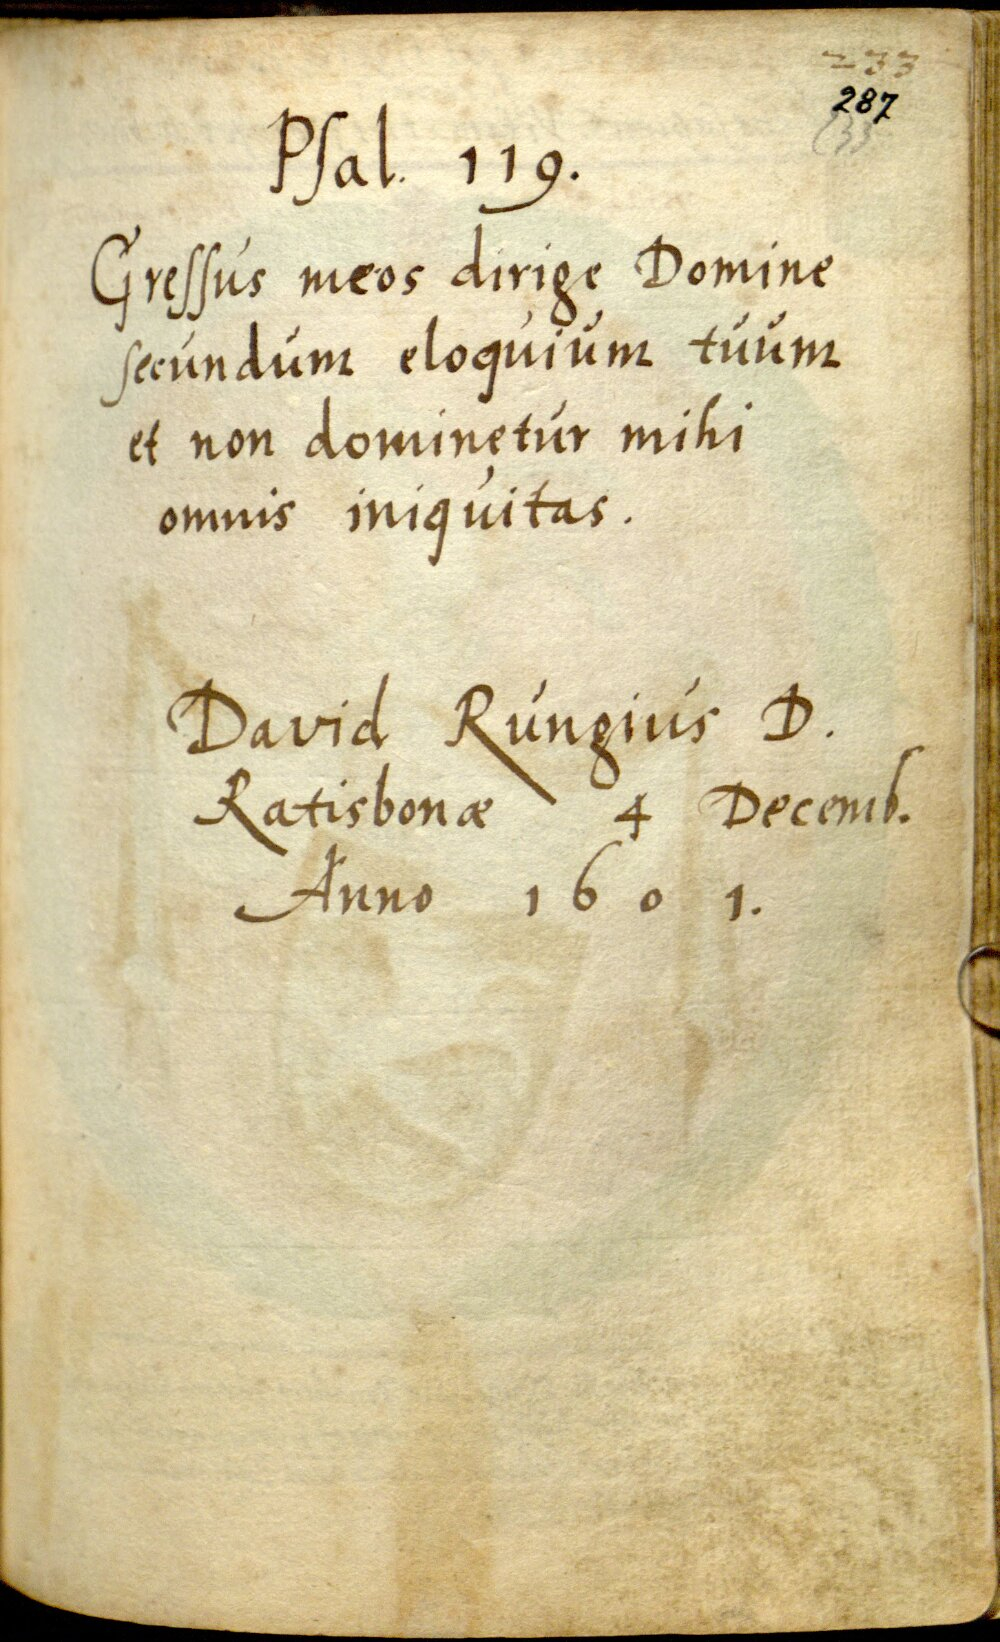 233
287
Psal. 119.
Gressus meos dirige Domine
secundum eloquium tuum
et non dominetur mihi
omnis iniquitas.
David Rungius D.
Ratisbonæ 4 Decemb.
Anno 1601.